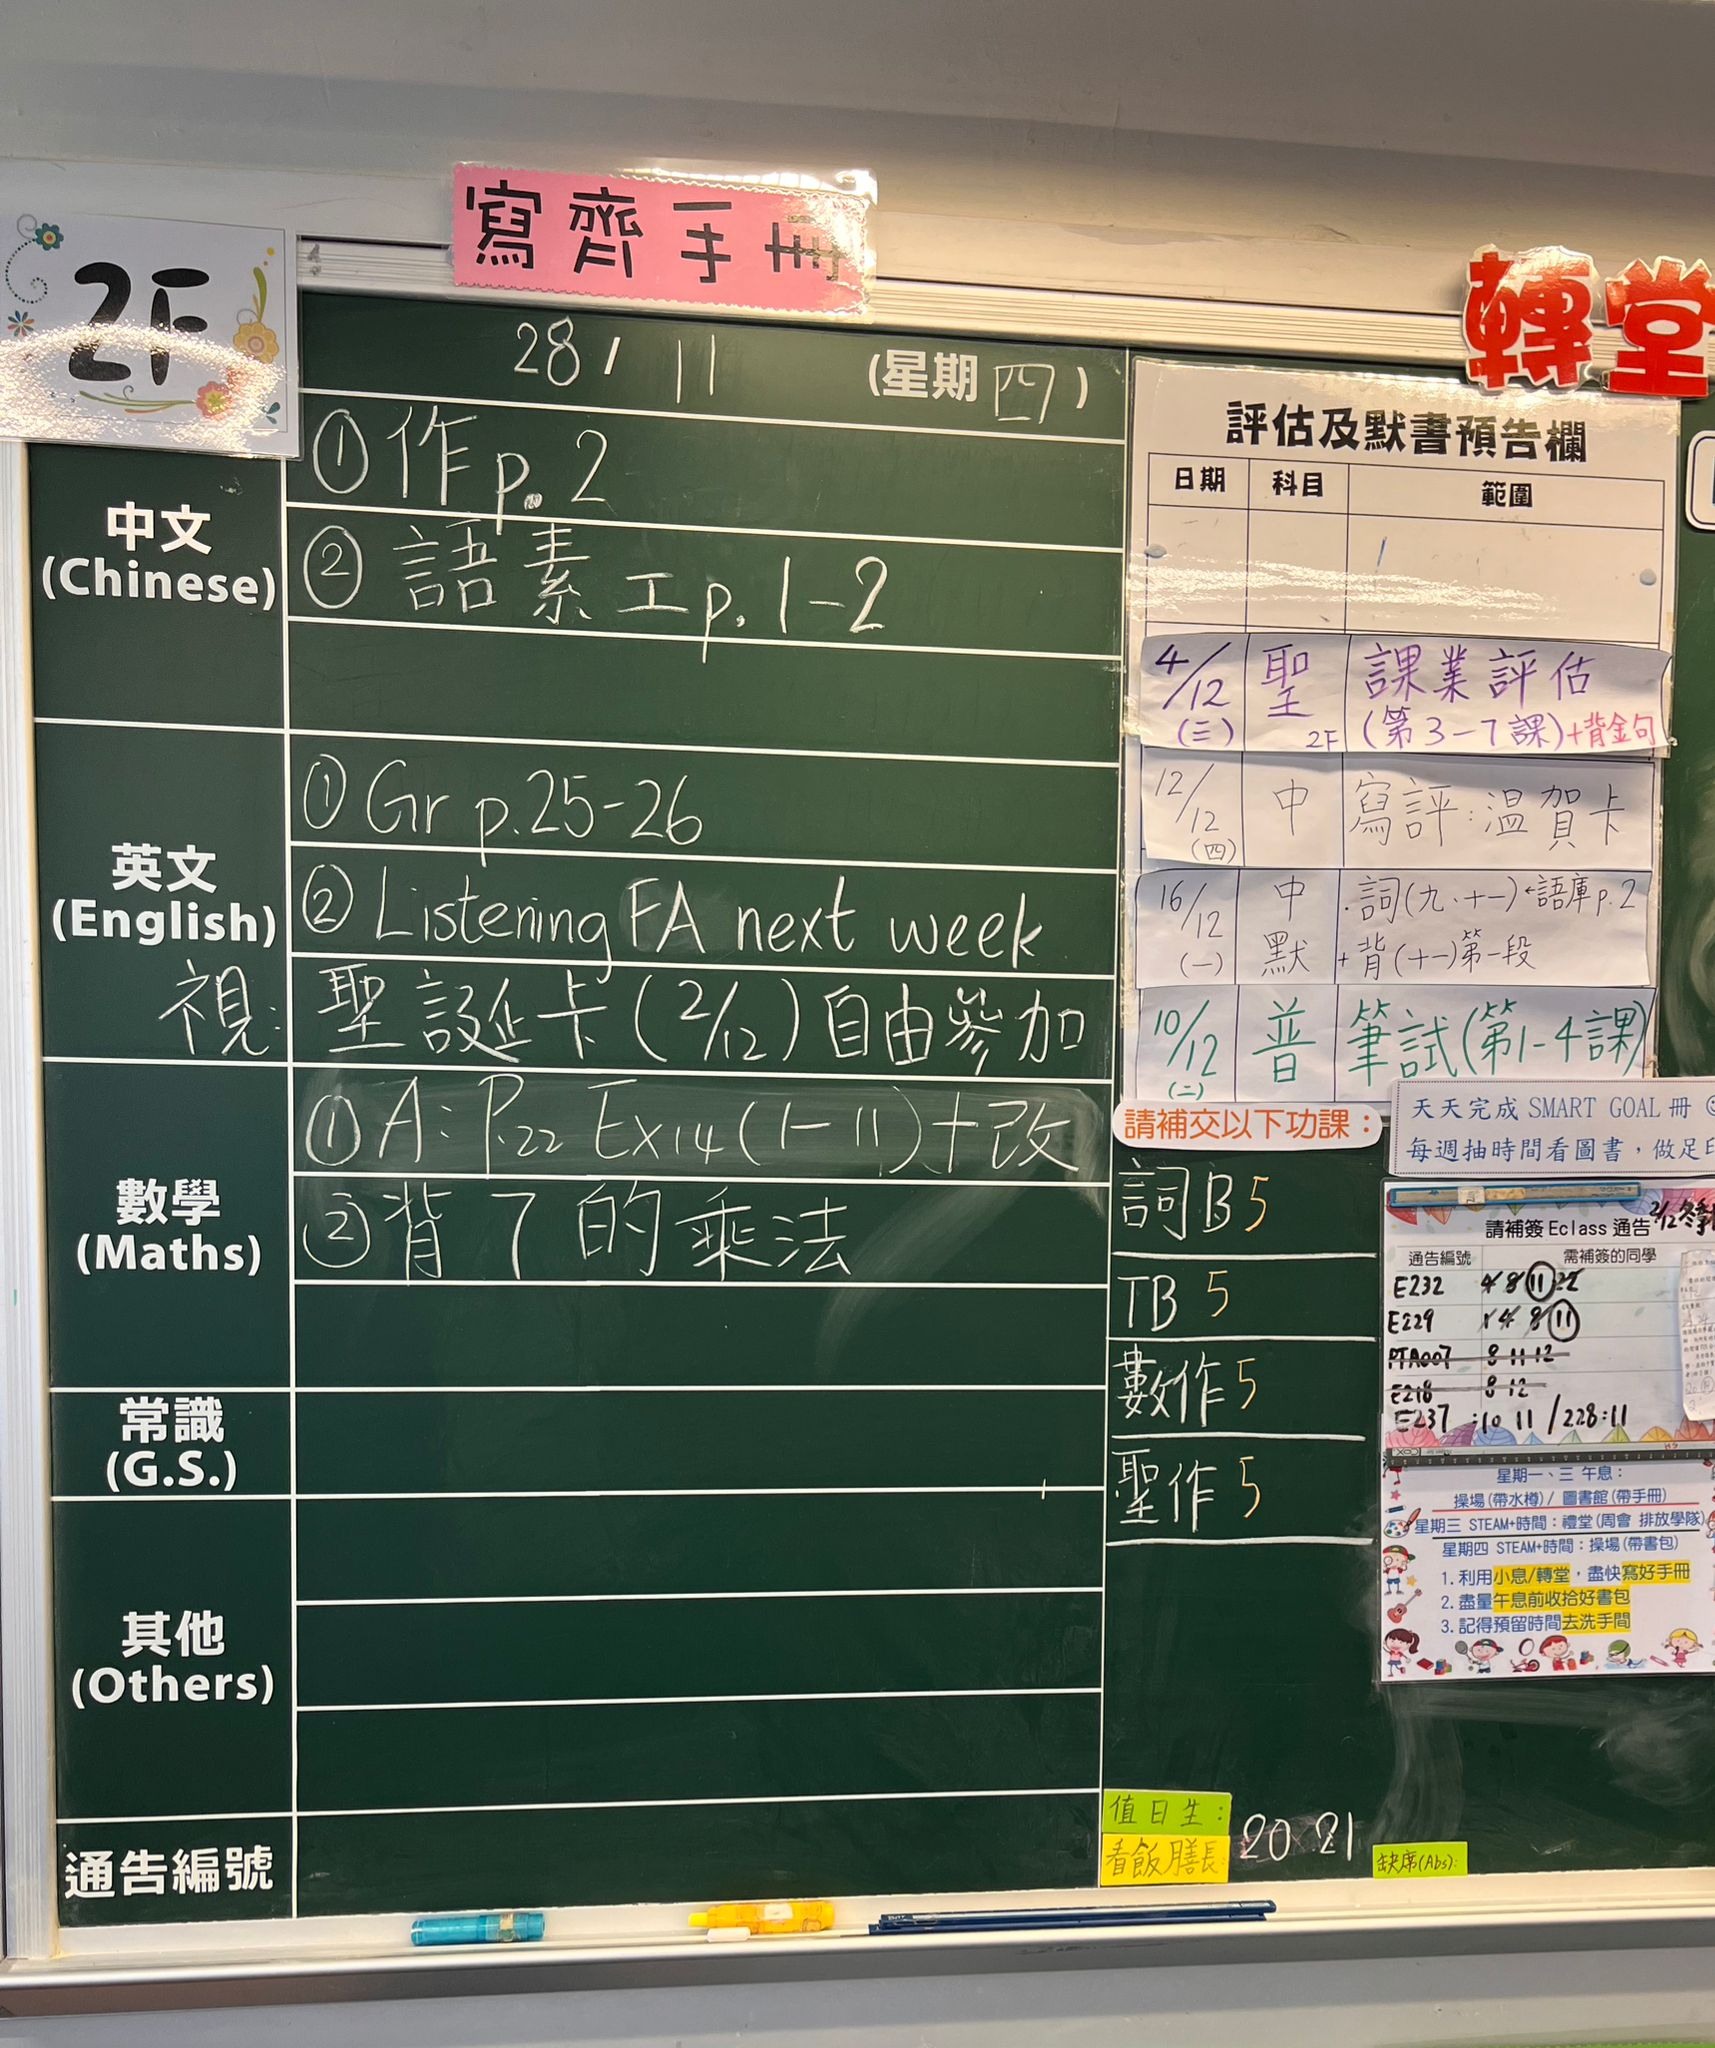 2F
寫齊手冊
轉堂
28 / 11 (星期四)
中文
(Chinese)
① 作 p. 2
② 語素工 p. 1-2
英文
(English)
① Gr p.25-26
② Listening FA next week
視: 聖誕卡 (2/12) 自由參加
數學
(Maths)
① A: P.22 Ex14 (1-11) + 改
② 背 7 的乘法
常識
(G.S.)
其他
(Others)
通告編號
評估及默書預告欄
日期 科目 範圍
4/12 (三) 聖 2F 課業評估 (第3-7課) +背金句
12/12 (四) 中 寫評:溫賀卡
16/12 (一) 中默 .詞(九、十一) ←語庫 p.2
+背(十一)第一段
10/12 (二) 普 筆試(第1-4課)
請補交以下功課:
詞B 5
TB 5
數作 5
聖作 5
天天完成 SMART GOAL 冊
每週抽時間看圖書,做足
2/12
請補簽 Eclass 通告
通告編號 需補簽的同學
E232 4 8 11 22
E229 1 4 8 11
PTA007 8 11 12
E218 8 12
E237 :10 11 /228:11
星期一、三 午息:
操場(帶水樽) / 圖書館(帶手冊)
星期三 STEAM+時間:禮堂(周會 排放學隊)
星期四 STEAM+時間:操場(帶書包)
1. 利用小息/轉堂,盡快寫好手冊
2. 盡量午息前收拾好書包
3. 記得預留時間去洗手間
值日生:
看飯膳長:
20 21
缺席(Abs):